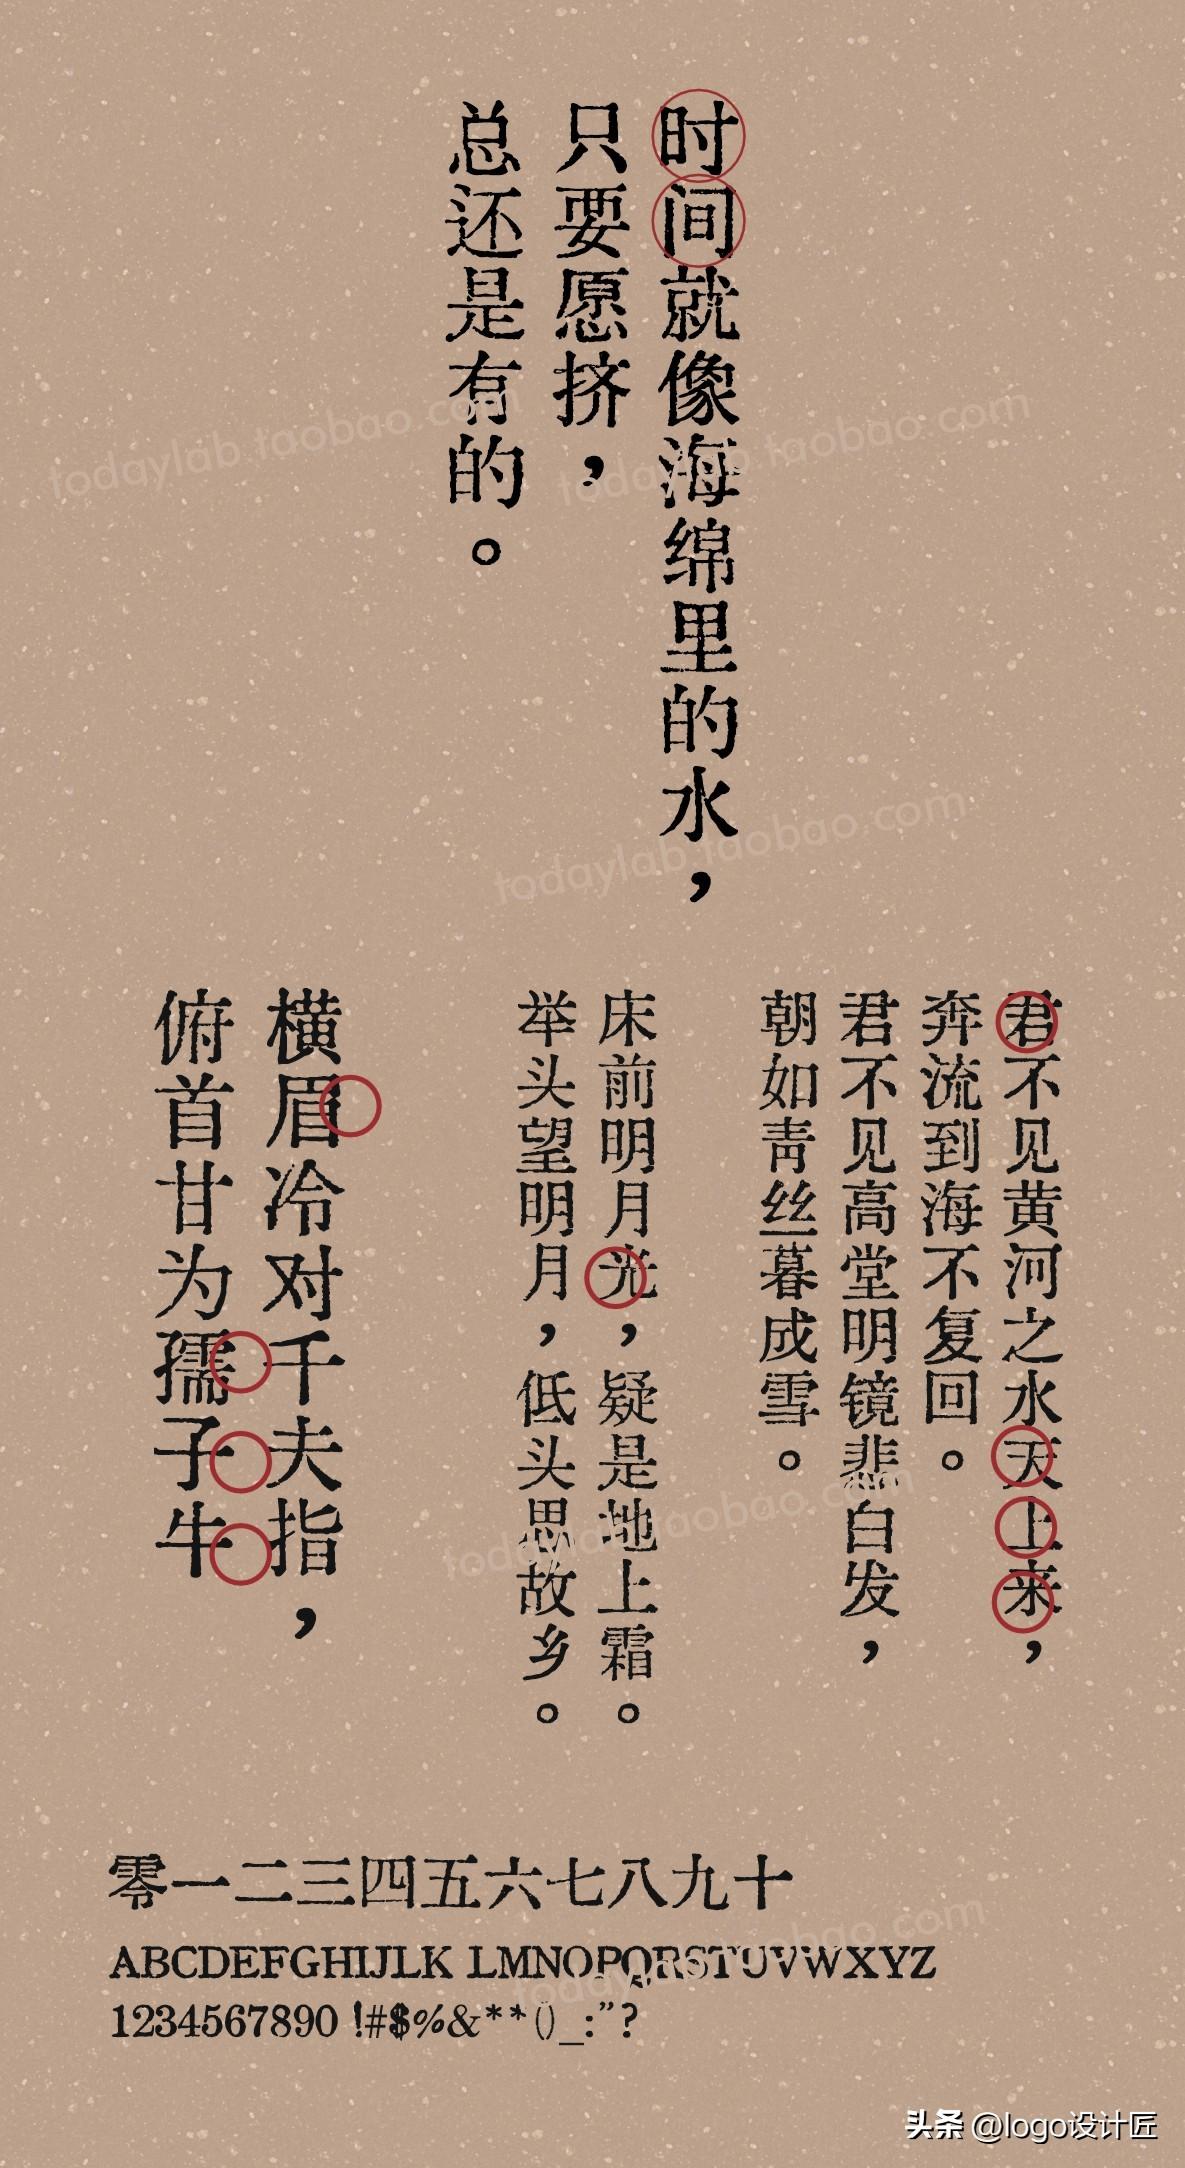 时间就像海绵里的水，
只要愿挤，
总还是有的。
君不见黄河之水天上来，
奔流到海不复回。
君不见高堂明镜悲白发，
朝如青丝暮成雪。
床前明月光，疑是地上霜。
举头望明月，低头思故乡。
横眉冷对千夫指，
俯首甘为孺子牛
零一二三四五六七八九十
ABCDEFGHIJLK LMNOPQRSTUVWXYZ
1234567890 !#$%&**()_:”?
todaylab.taobao.com
todaylab.taobao.com
todaylab.taobao.com
todaylab.taobao.com
todaylab.taobao.com
头条 @logo设计匠